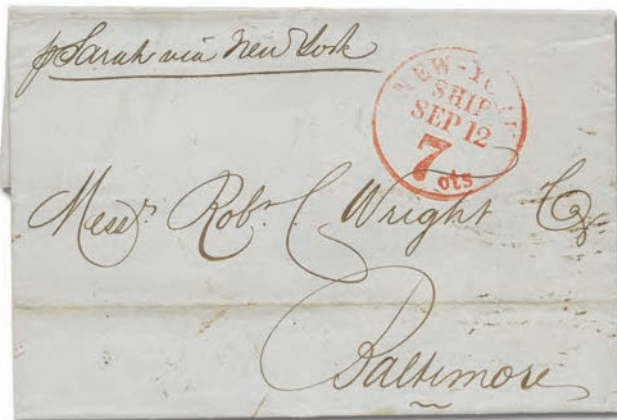 p Sarah via New York
NEW-YORK
SHIP
SEP 12
7
cts
Messrs Robt C Wright Co
Baltimore